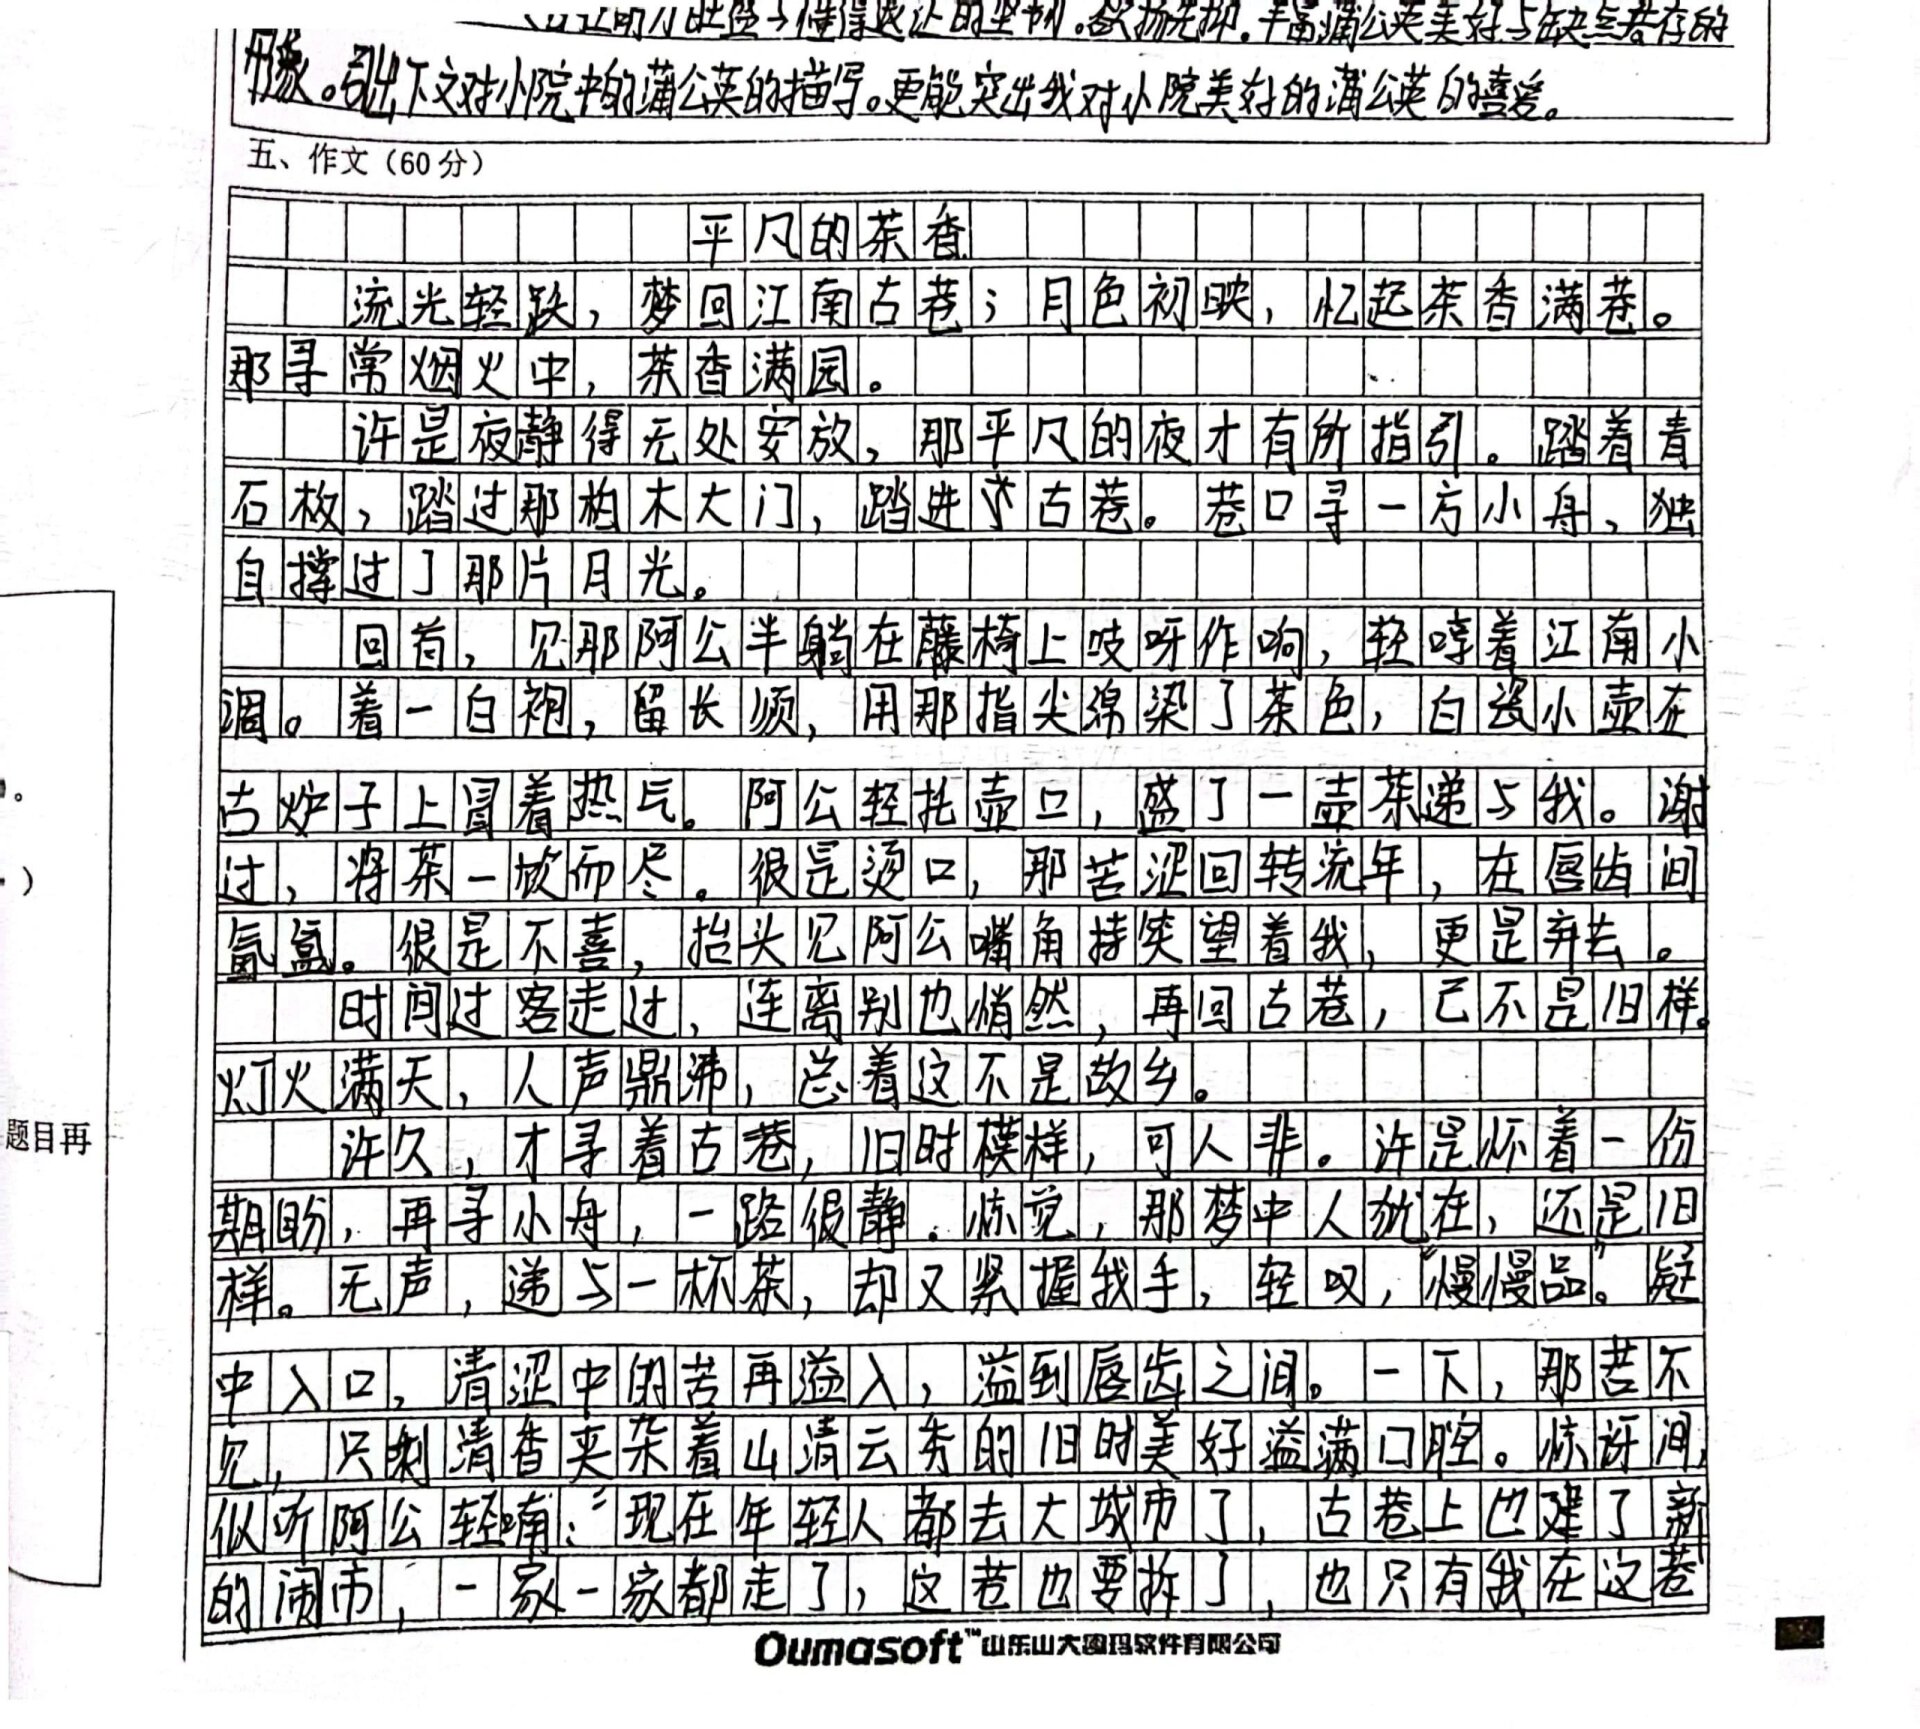 形象。引出下文对小院中的蒲公英的描写。更能突出我对小院美好的蒲公英的喜爱。
五、作文（60分）
平凡的茶香
流光轻跌，梦回江南古巷；月色初映，忆起茶香满巷。
那寻常烟火中，茶香满园。
许是夜静得无处安放，那平凡的夜才有所指引。踏着青
石板，踏过那构木大门，踏进了古巷。巷口寻一方小舟，独
自撑过了那片月光。
回首，见那阿公半躺在藤椅上吱呀作响，轻哼着江南小
调。着一白袍，留长须，用那指尖绵染了茶色，白瓷小壶在
古炉子上冒着热气。阿公轻托壶口，盛了一壶茶递与我。谢
过，将茶一饮而尽。很是烫口，那苦涩回转流年，在唇齿间
氤氲。很是不喜，抬头见阿公嘴角持笑望着我，更是弃去。
时间过客走过，连离别也悄然，再回古巷，已不是旧样。
灯火满天，人声鼎沸，总着这不是故乡。
许久，才寻着古巷，旧时模样，可人非。许是怀着一份
期盼，再寻小舟，一路很静．惊觉，那梦中人犹在，还是旧
样。无声，递与一杯茶，却又紧握我手，轻叹，“慢慢品”。疑
中入口，清涩中的苦再溢入，溢到唇齿之间。一下，那苦不
见，只剩清香夹杂着山清云秀的旧时美好溢满口腔。惊讶间，
似听阿公轻喃：“现在年轻人都去大城市了，古巷上也建了新
的闹市，一家一家都走了，这巷也要拆了，也只有我在这巷
Oumasoft™山东山大鸥玛软件有限公司
。
）
题目再